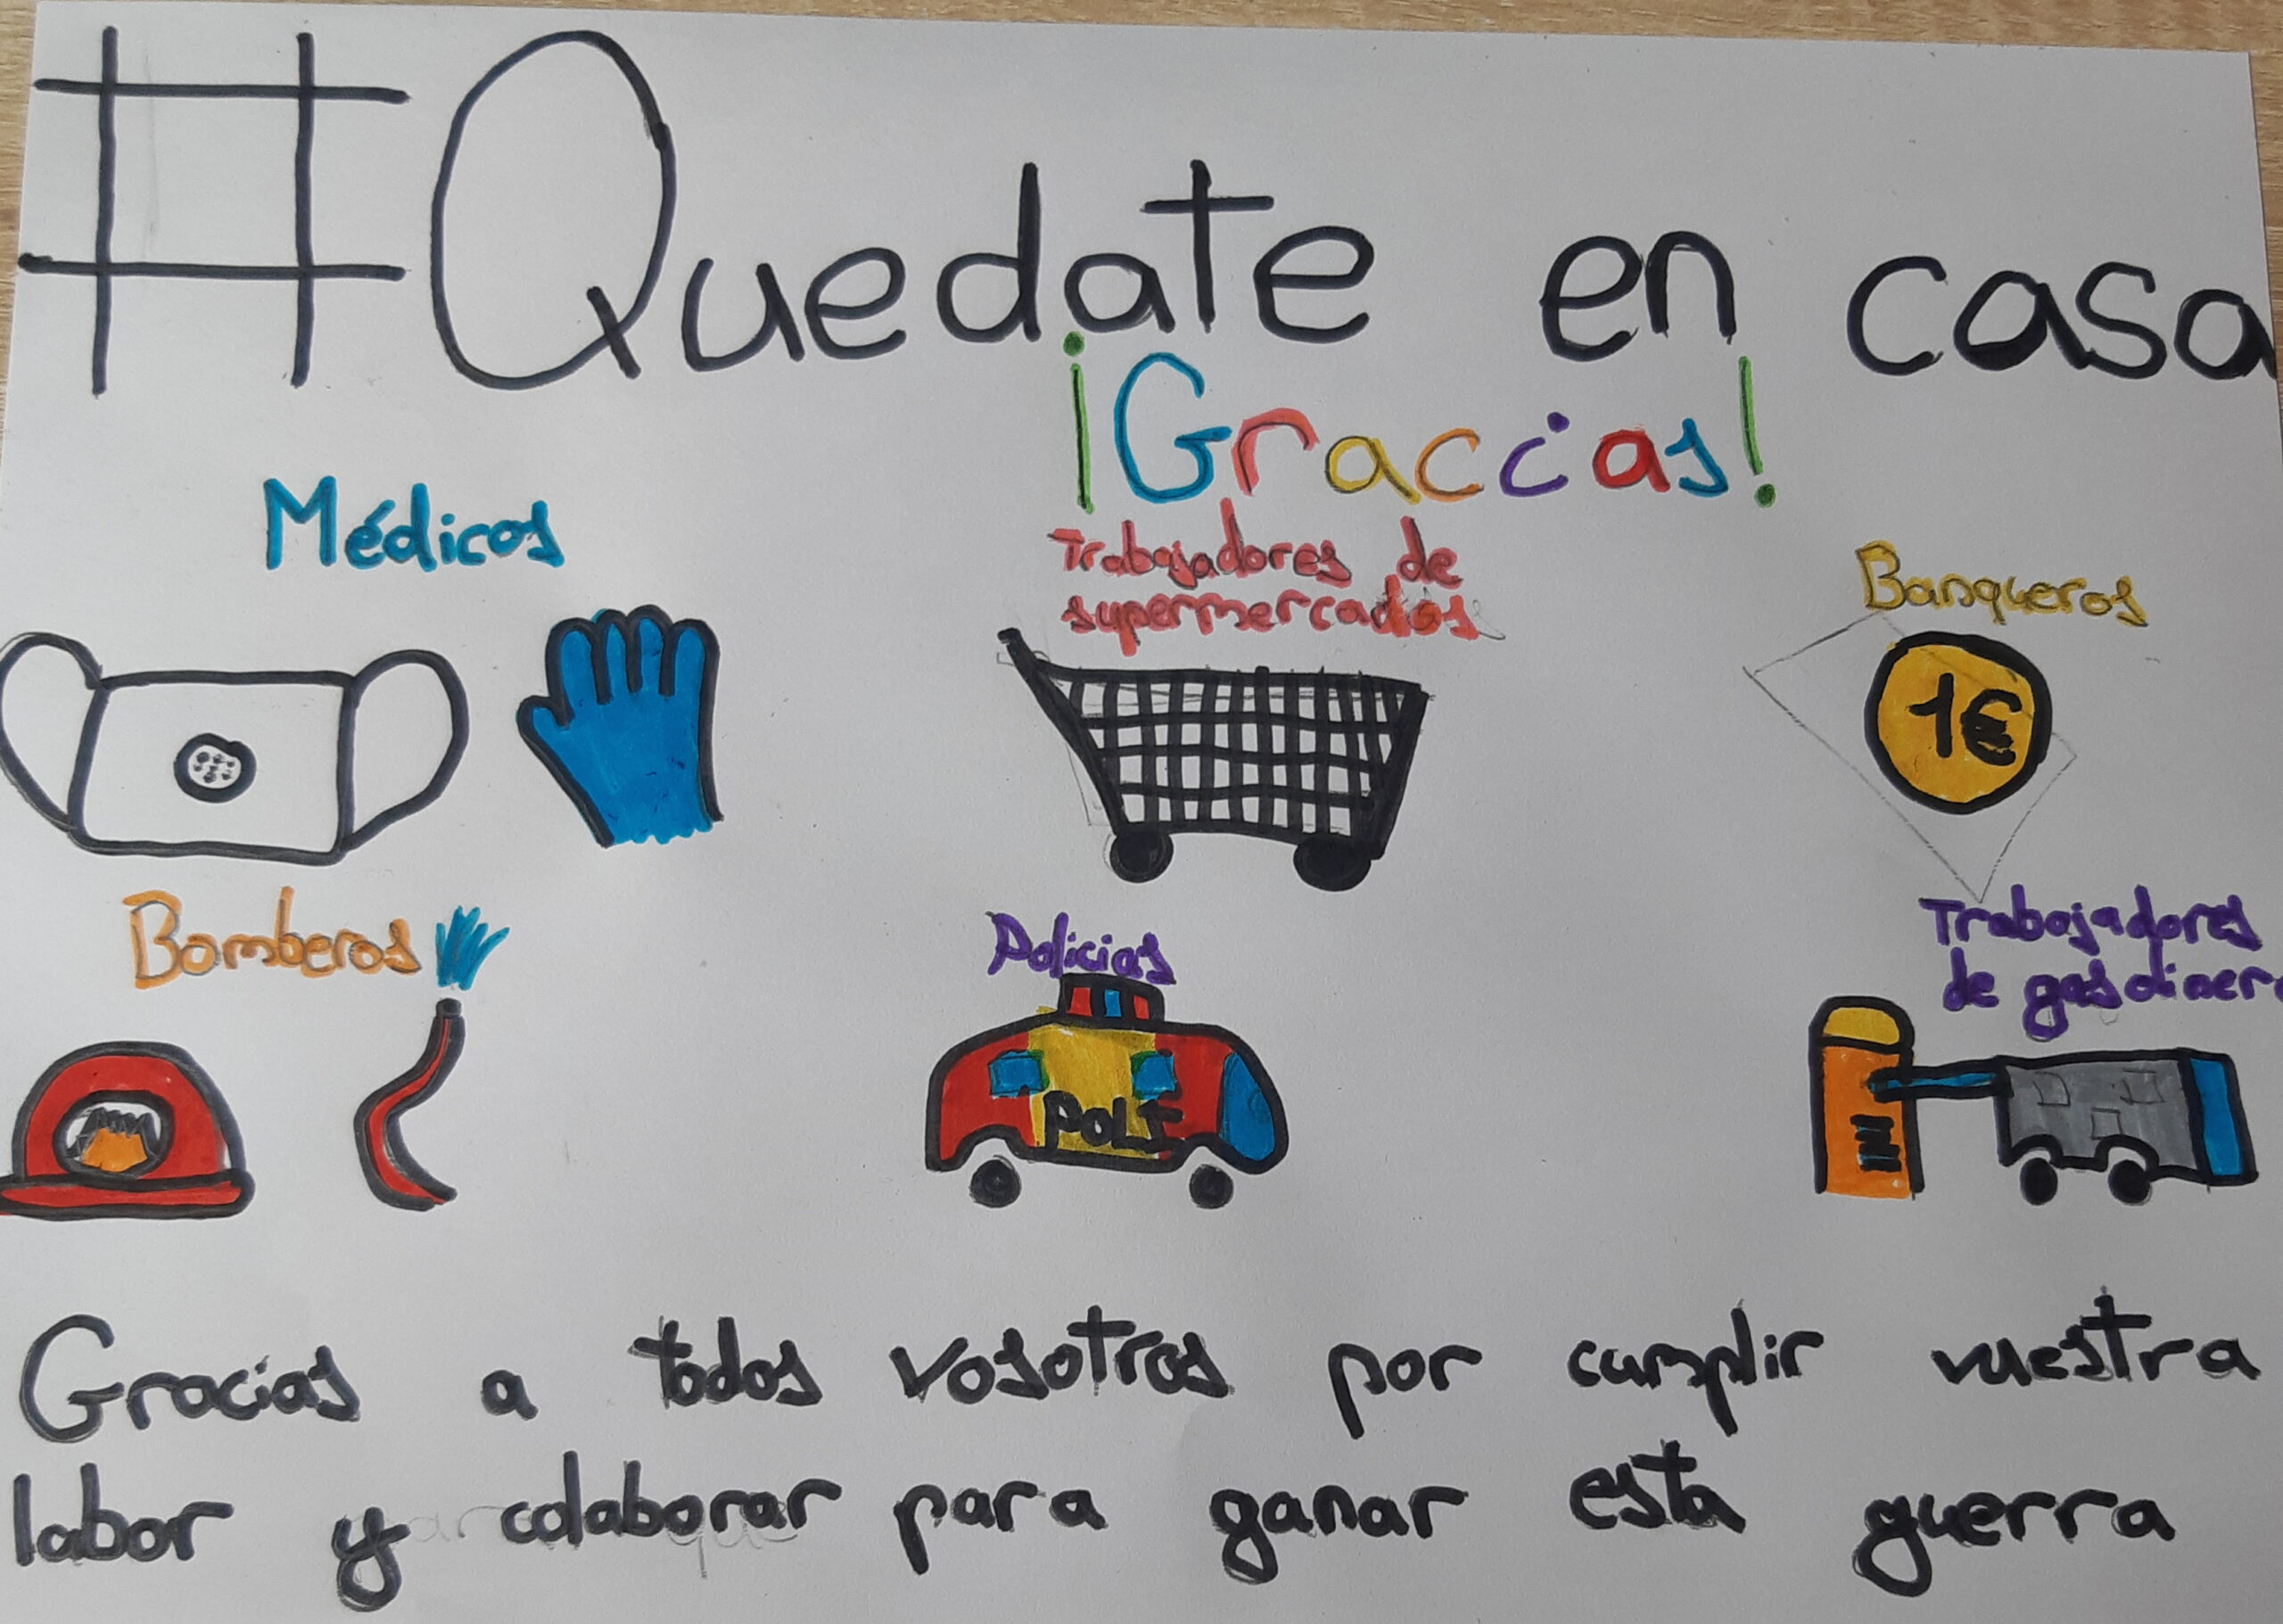 #Quedate en casa
¡Gracias!
Médicos
Trabajadores de
supermercados
Banqueros
1€
Bomberos
Policias
POLI
Trabajadores
de gasoliner
Gracias a todos vosotros por cumplir vuestra
labor y colaborar para ganar esta guerra